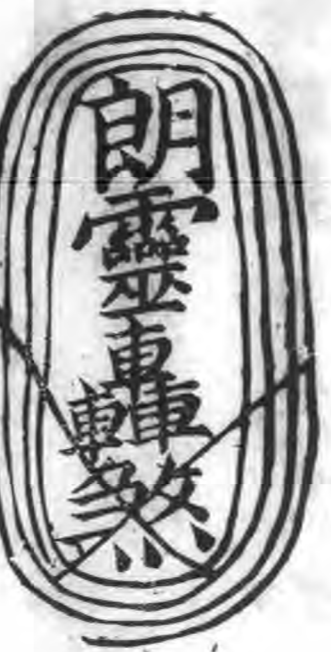 朗靈轟煞